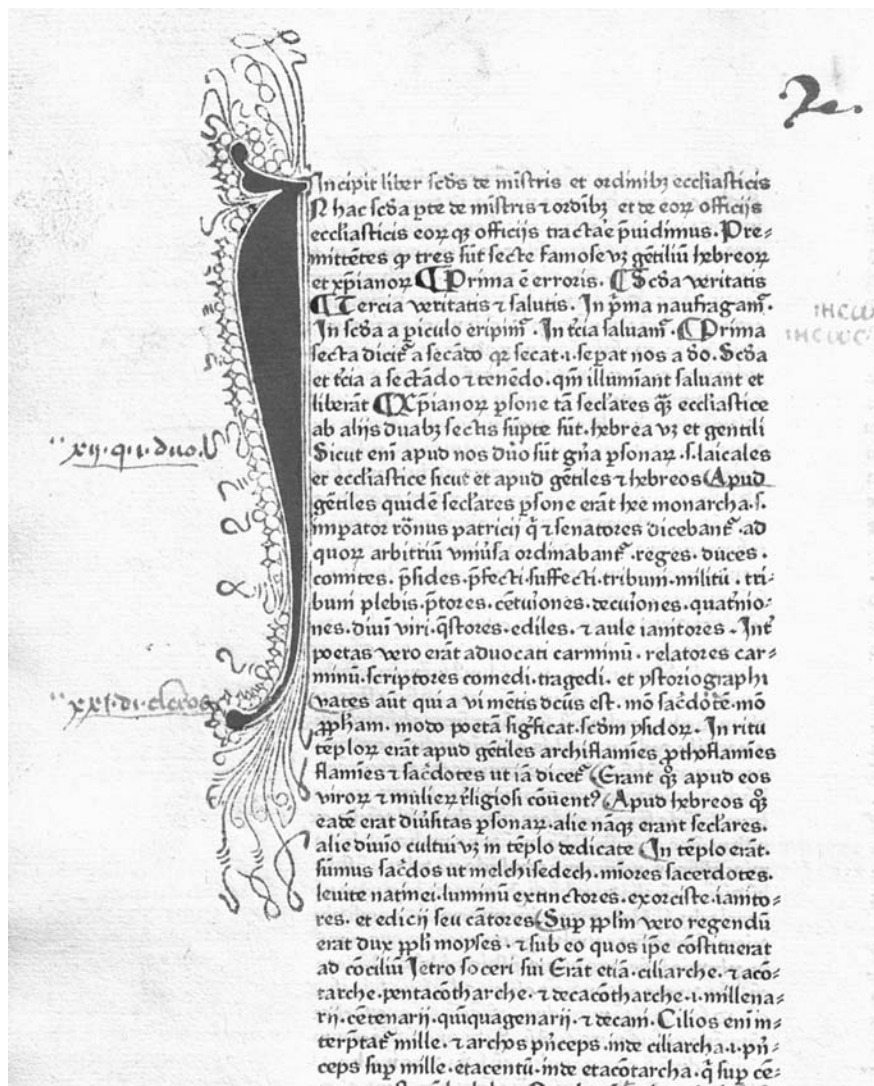 2e.
Incipit liber scďs de miſtris et ordinibꝫ eccliaſticis
N hac scďa ꝑte de miſtris ⁊ ordĩbꝫ et de eoꝝ officijs
eccliaſticis eoꝝ qꝫ officijs tractae p̃uidimus. Pre⸗
mittẽtes ꝙ tres ſũt ſecte famoſe vꝫ gẽtiliũ hebreoꝝ
et xp̃ianoꝝ ¶ Prima ẽ erroris. ¶ Scďa veritatis
¶ Tercia veritatis ⁊ ſalutis. In p̃ma naufragam̃.
In ſcďa a ꝑiculo eripim̃. In t̃cia ſaluam̃. ¶ Prima
ſecta dicit᷑ a ſecãdo qꝛ ſecat .i. ſeꝑat nos a ďo. Scďa
et t̃cia a ſectãdo ⁊ tenẽdo. qm̃ illumĩant ſaluant et
liberãt ¶ Xp̃ianoꝝ ꝑſone tã ſecl'ares qꝫ̃ eccliaſtice
ab alijs duabꝫ ſectis ſũpte ſũt. hebrea vꝫ et gentili
Sicut eni᷑ apud nos duo ſũt gña ꝑſonaꝝ .ſ. laicales
et eccliaſtice ſicut et apud gẽtiles ⁊ hebreos (Apud
gẽtiles quidẽ ſecl'ares ꝑſone erãt hee monarcha .ſ.
imꝑator rõnus patricij q̃ ⁊ ſenatores dicebant᷑ .ad
quoꝝ arbitriũ vniu̓ſa ordinabant᷑ .reges. duces.
comites. p̃ſides. p̃fecti. ſuffecti. tribuni. militũ . tri⸗
buni plebis. p̃tores. cẽtu̓iones. decu̓iones. quat̓nio⸗
nes. diuĩ viri. q̃ſtores. ediles. ⁊ aule ianitores . Int̓
poetas vero erãt aduocati carminũ . relatores car⸗
minũ. ſcriptores comedi. tragedi. et yſtoriographi
(vates aũt qui a vi mẽtis dc̃us eſt. mõ ſac̓dotẽ. mõ
ꝓpham. modo poetã ſig̃ficat. ſcďm yſidoꝝ. In ritu
tẽploꝝ erãt apud gẽtiles archiflamĩes ꝓthoflamĩes
flamĩes ⁊ ſac̓dotes ut iã dicet᷑ (Erant qꝫ̃ apud eos
viroꝝ ⁊ mulieꝝ r̃ligioſi cõuent᷒ (Apud hebreos qꝫ̃
eadẽ erat diu̓ſitas ꝑſonaꝝ. alie nãqꝫ erant ſecl'ares.
alie diuĩo cultui vꝫ in tẽplo dedicate (In tẽplo erãt.
ſũmus ſac̓dos ut melchiſedech. mĩores ſacerdotes.
leuite natinei. luminũ extinctores. exorciſte. ianito⸗
res. et edicij ſeu cãtores (Suꝑ ppľm vero regendũ
erat dux ppľi moyſes. ⁊ ſub eo quos ip̃e cõſtituerat
ad cõciliũ Jetro ſoceri ſui Erãt etiã. ciliarche. ⁊ acõ⸗
tarche. pentacõtharche. ⁊ decacõtharche .i. millena⸗
rij. cẽtenarij. quĩquagenarij. ⁊ decani. Cilios eni᷑ in⸗
terp̃tat᷑ mille. ⁊ archos p̃nceps. inde ciliarcha .i. p̃n⸗
ceps ſuꝑ mille. etacentũ. inde etacõtarcha. q̃ ſuꝑ cẽ⸗
xij. q. i. duo.
xxi. di. cleros